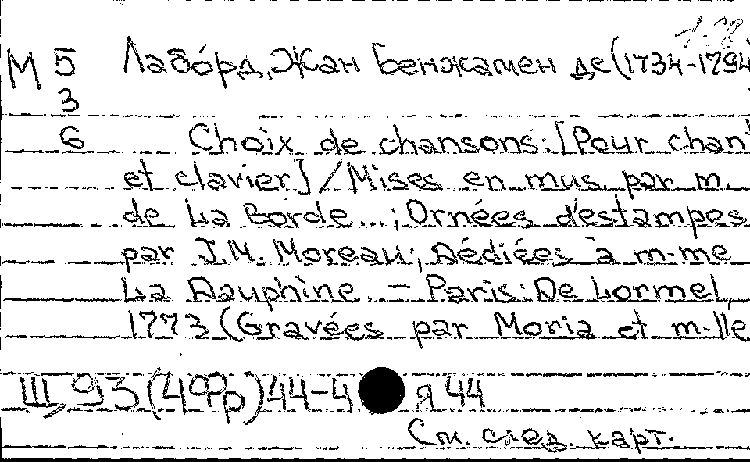 М 5 Лабо́рд, Жан Бенжамен де (1734-1794)
3
6 Choix de chansons: [Pour chant
et clavier] / Mises en mus. par m.
de La Borde...; Ornées d'estampes
par J.M. Moreau; Dédiées à m-me
La Dauphine. - Paris: De Lormel,
1773 (Gravées par Moria et m-lle
Щ 93(4Фр)44-4 я44
См. след. карт.